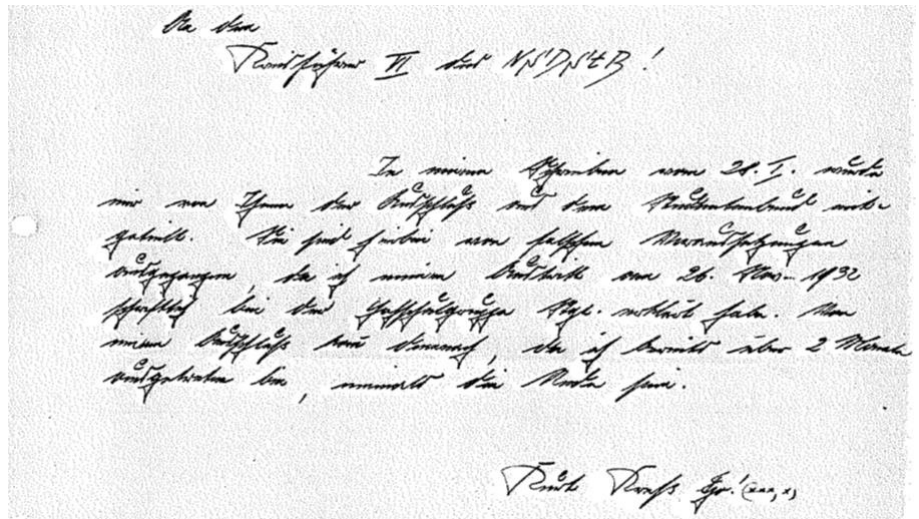 An den
Kreisführer VI des NSDStB!
In einem Schreiben vom 28. I. wurde
mir von Ihnen der Ausschluß aus dem Studentenbund mit-
geteilt. Sie sind hiebei von falschen Voraussetzungen
ausgegangen, da ich meinen Austritt am 26. Nov. 1932
schriftlich bei der Hochschulgruppe Stgt. erklärt habe. Von
einem Ausschluß kann demnach, da ich bereits über 2 Monate
ausgetreten bin, niemals die Rede sein.
Kurt Kress